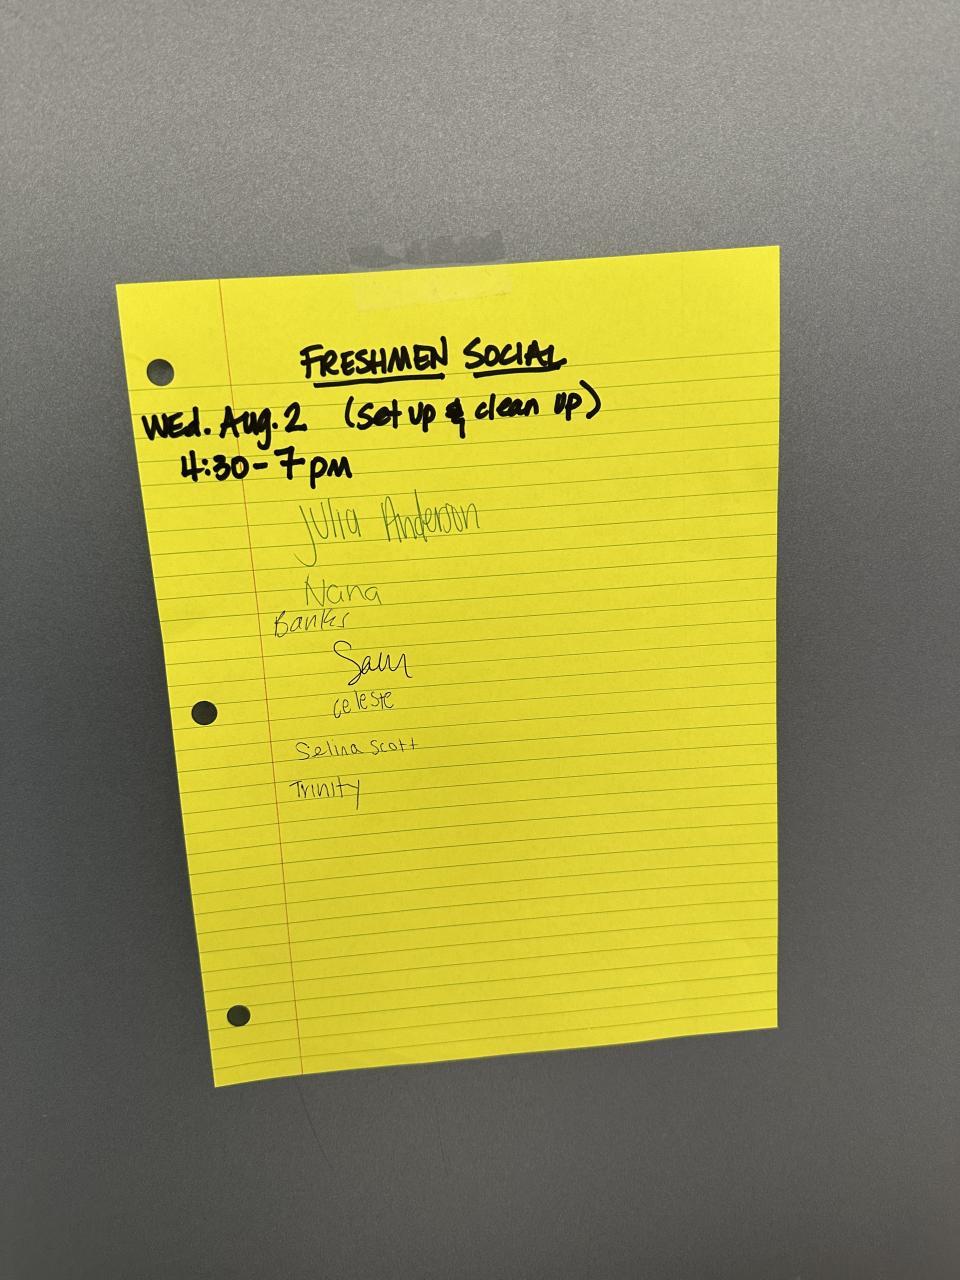 FRESHMEN SOCIAL
WED. Aug. 2 (set up & clean up)
4:30-7pm
Julia Anderson
Nana
Banks
Sam
celeste
Selina Scott
Trinity